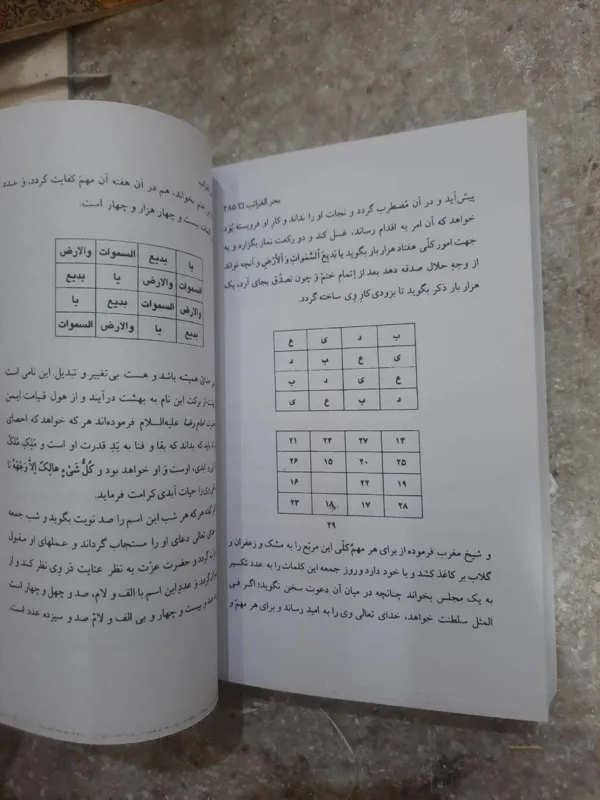 بحر الغرائب □ ۲۸۵
پیش آید و در آن مُضطرب گردد و نجات او را نداند و کار او فروبسته بُوَد
خواهد که آن امر به اقدام رساند، غسل کند و دو رکعت نماز بگزارد و به
جهت امور کلّی هفتاد هزار بار بگوید یا بَدیعَ السَّمواتِ وَ الْاَرْضِ و آنچه تواند
از وجهِ حلال صدقه دهد بعد از اِتمام ختمْ وَ چون تصدُّق بجای آرد، یک
هزار بار ذکر بگوید تا بزودی کارِ وِی ساخته گردد.
ب د ی ع
ی ع ب د
ع ی د ب
د ب ع ی
۱۴ ۲۷ ۲۴ ۲۱
۲۵ ۲۰ ۱۵ ۲۶
۱۹ ۲۲ ۱۶
۲۸ ۱۷ ۱۸ ۲۳
۲۹
و شیخ مغرب فرموده از برای هر مهمّ کلّی این مربّع را به مشک و زعفران و
گلاب بر کاغذ کشد و با خود دارد و روز جمعه این کلمات را به عدد تکسیر
به یک مجلس بخواند چنانچه در میان آن دعوت سخن نگوید؛ اگر فی
المثل سلطنت خواهد، خدای تعالی وی را به امید رساند و برای هر مهمّ و
ختم بخواند، هم در آن هفته آن مهمّ کفایت گردد، وَ عدد
کلمات، بیست و چهار هزار و چهار است.
یا بدیع السموات والارض
والارض السموات یا بدیع
السموات والارض بدیع یا
بدیع یا والارض السموات
همیشه باشد و هست بی‌تغییر و تبدیل. این نامی است
از برکت این نام به بهشت درآیند و از هول قیامت ایمن
امام رضا علیه‌السلام فرموده‌اند هر که خواهد که احصای
باید که بداند که بقا و فنا به یَدِ قدرت او است و مَلِکِ مُلکْ
اَبدی، اوست وَ او خواهد بود و کُلُّ شَیْءٍ هالِکٌ اِلاّ وَجْهَهُ تا
وی را حیات اَبدی کرامت فرماید.
گفته که هر که هر شب این اسم را صد نوبت بگوید و شب جمعه
تعالی دعای او را مستجاب گرداند و عملهای او مقبول
گردد و حضرت عزّت به نظر عنایت دَر وِی نظر کند و از
گردد و عددِ این اسم با اَلف و لام، صد و چهل و چهار است
صد و بیست و چهار و بی الف و لامْ صد و سیزده عدد است.